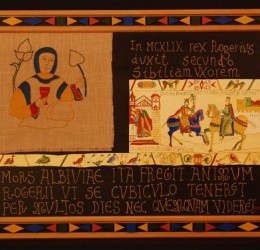 IN MCXLIX REX ROGERIUS
DUXIT SECUNDO
SIBILIAM UXOREM
MORS ALBIVIAE ITA FREGIT ANIMUM
ROGERII UT SE CUBICULO TENERET
PER MULTOS DIES NEC QUEMQUAM VIDERET